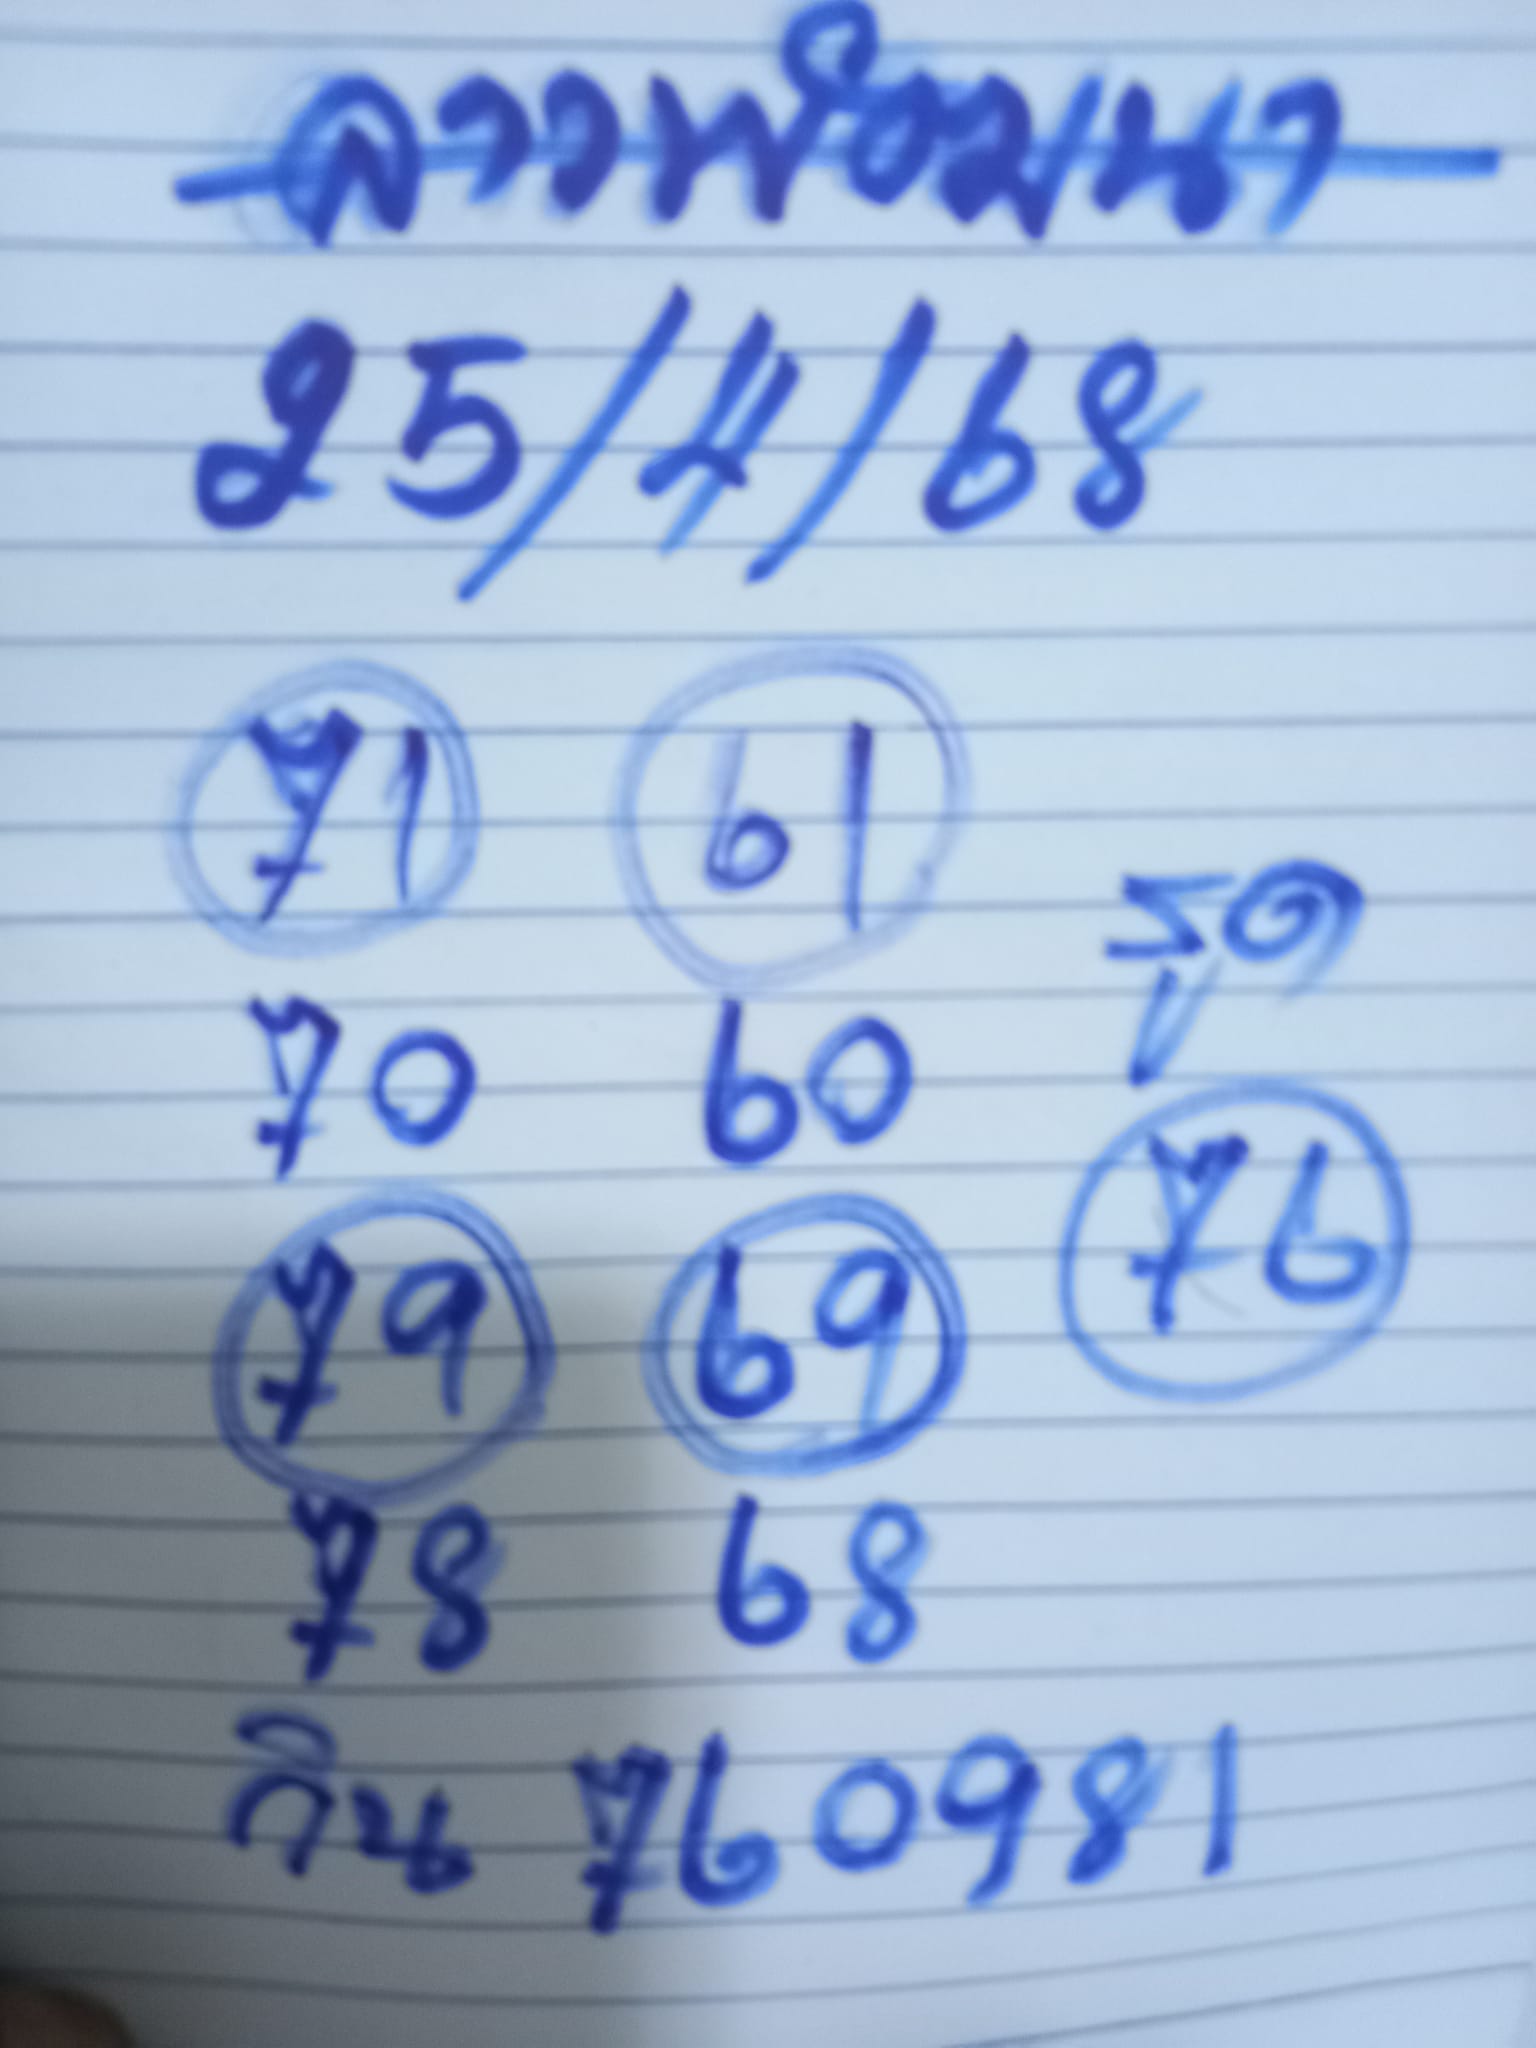 ลาวพัฒนา
25/4/68
71 61
รูด
70 60
76
79 69
78 68
วิน 760981